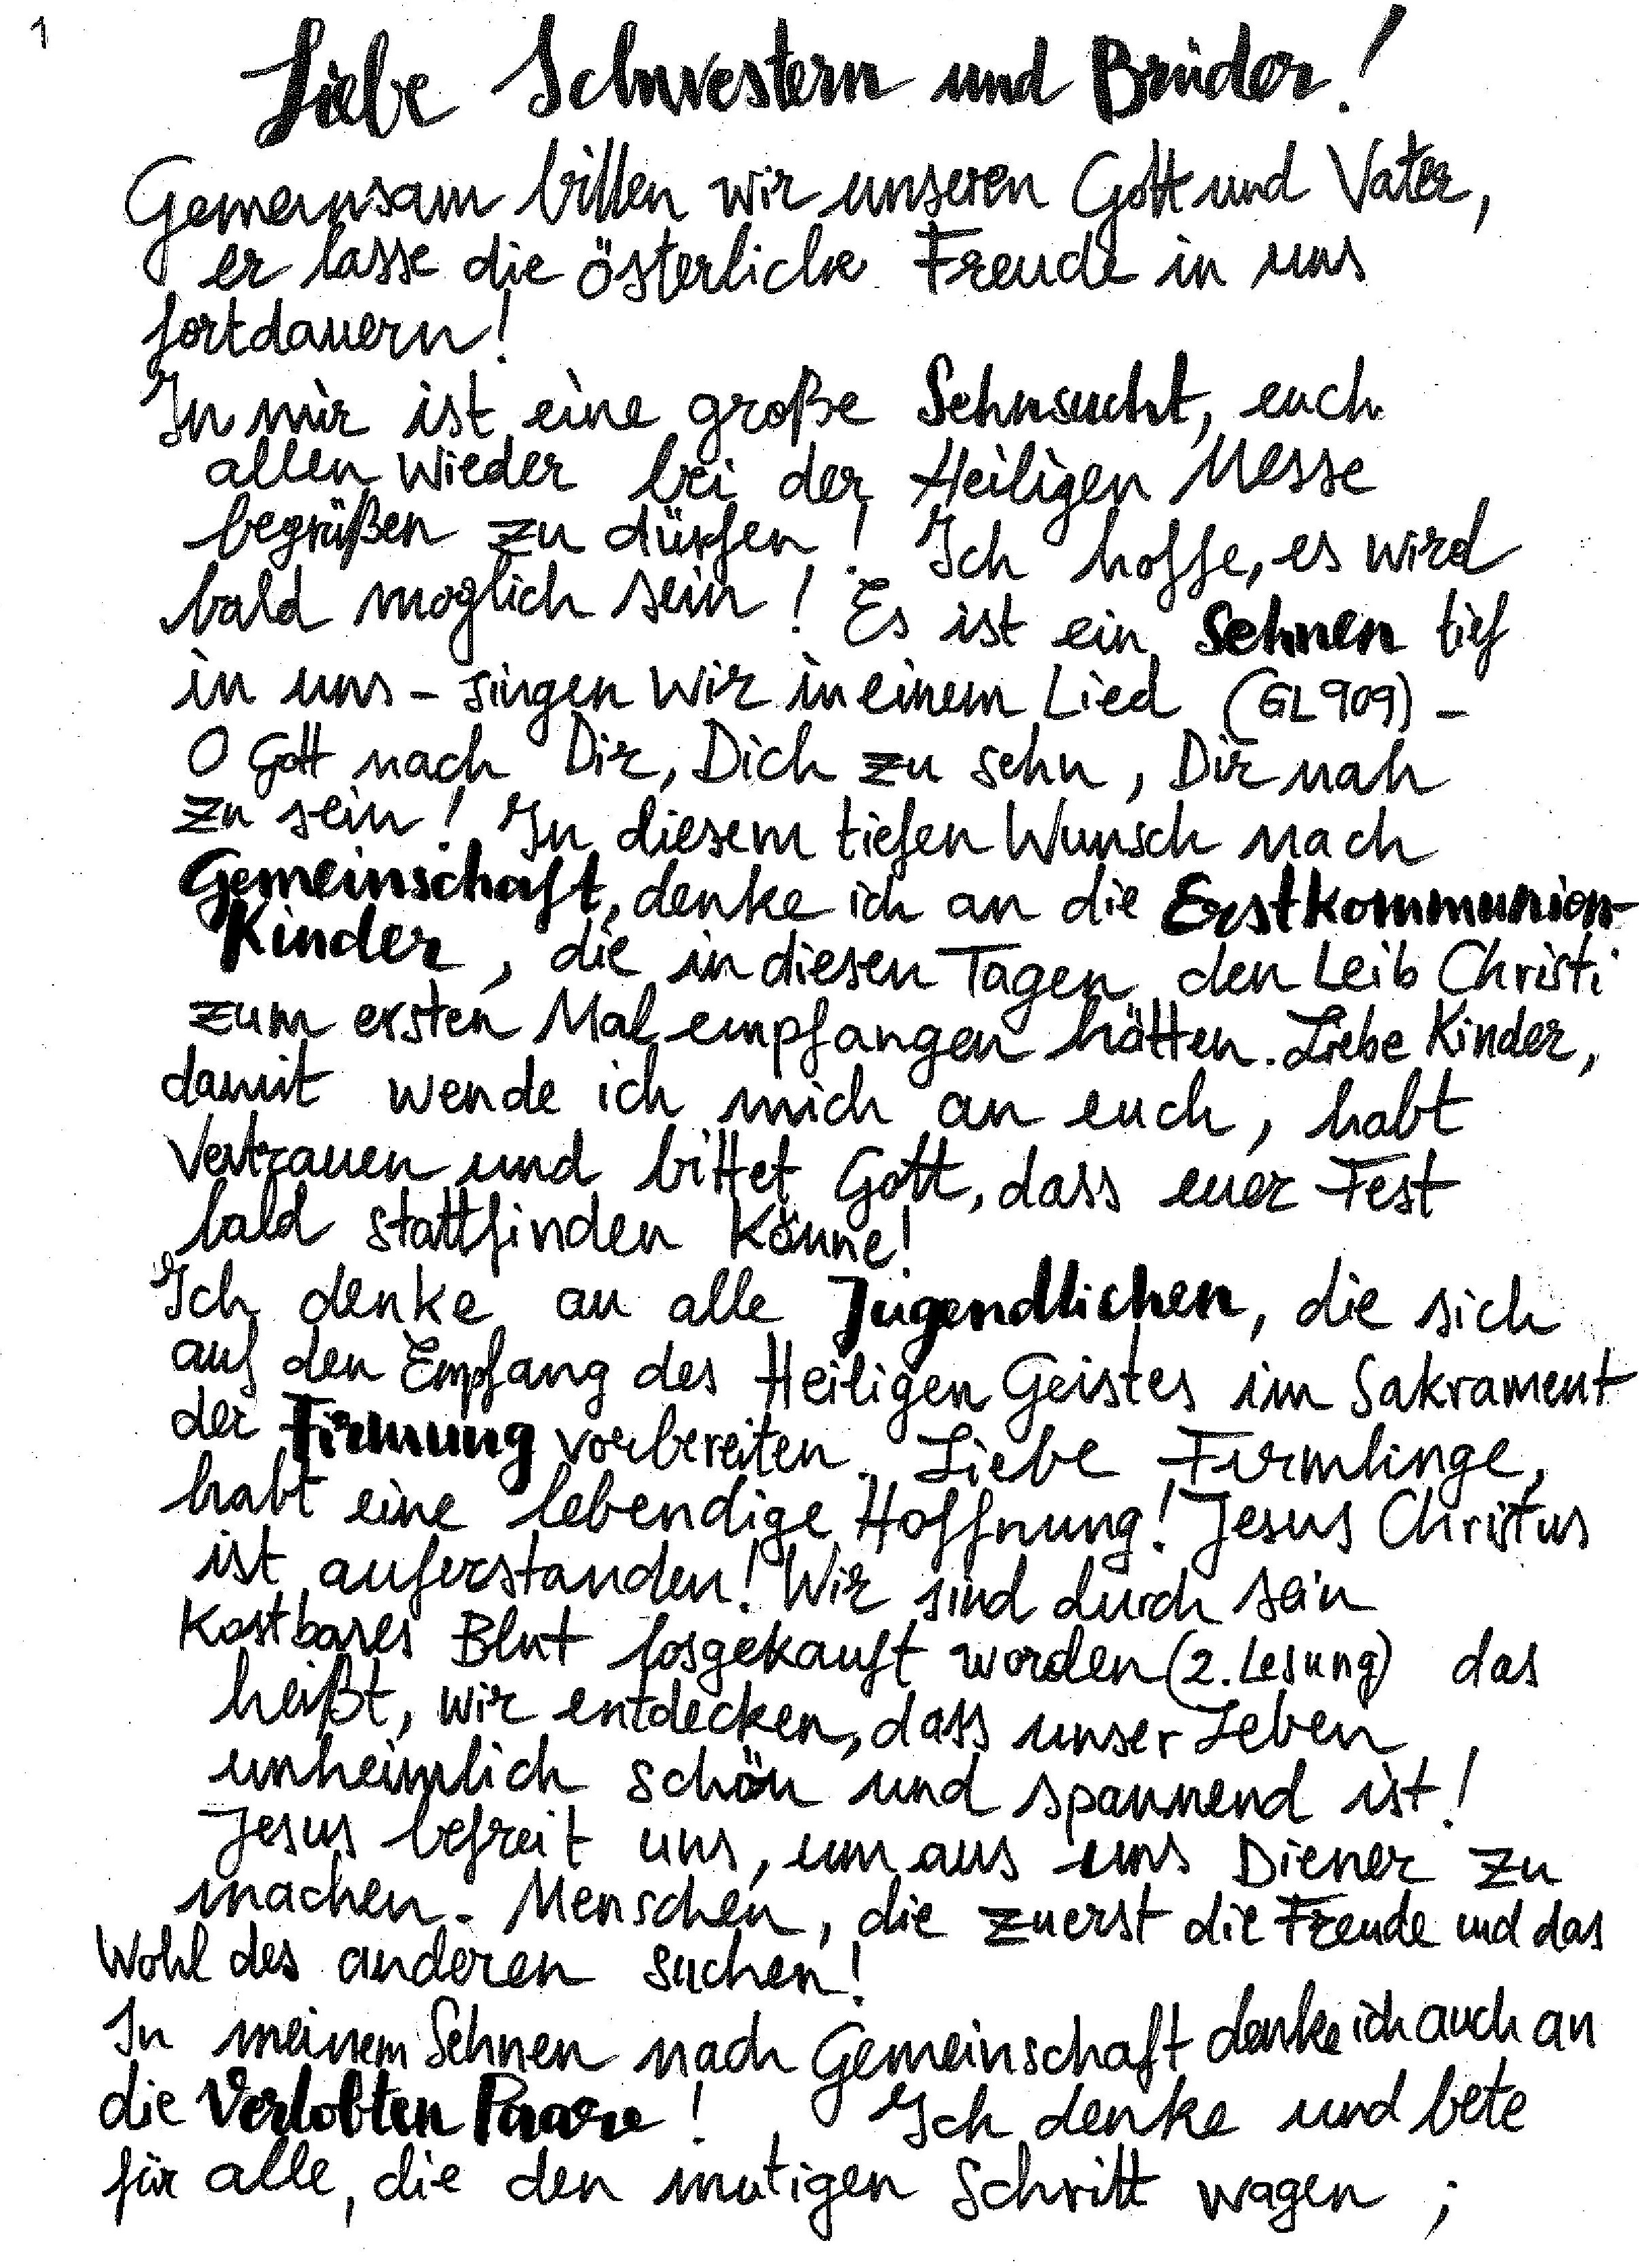 1
Liebe Schwestern und Brüder!
Gemeinsam bitten wir unseren Gott und Vater,
er lasse die österliche Freude in uns
fortdauern!
In mir ist eine große Sehnsucht, euch
allen wieder bei der Heiligen Messe
begrüßen zu dürfen! Ich hoffe, es wird
bald möglich sein! Es ist ein Sehnen tief
in uns - singen wir in einem Lied (GL 909) -
O Gott nach Dir, Dich zu sehn, Dir nah
zu sein! In diesem tiefen Wunsch nach
Gemeinschaft, denke ich an die Erstkommunion-
Kinder, die in diesen Tagen den Leib Christi
zum ersten Mal empfangen hätten. Liebe Kinder,
damit wende ich mich an euch, habt
Vertrauen und bittet Gott, dass euer Fest
bald stattfinden könne!
Ich denke an alle Jugendlichen, die sich
auf den Empfang des Heiligen Geistes im Sakrament
der Firmung vorbereiten. Liebe Firmlinge,
habt eine lebendige Hoffnung! Jesus Christus
ist auferstanden! Wir sind durch sein
kostbares Blut losgekauft worden (2. Lesung) das
heißt, wir entdecken, dass unser Leben
unheimlich schön und spannend ist!
Jesus befreit uns, um aus uns Diener zu
machen. Menschen, die zuerst die Freude und das
Wohl des anderen suchen!
In meinem Sehnen nach Gemeinschaft denke ich auch an
die Verlobten Paare! Ich denke und bete
für alle, die den mutigen Schritt wagen;